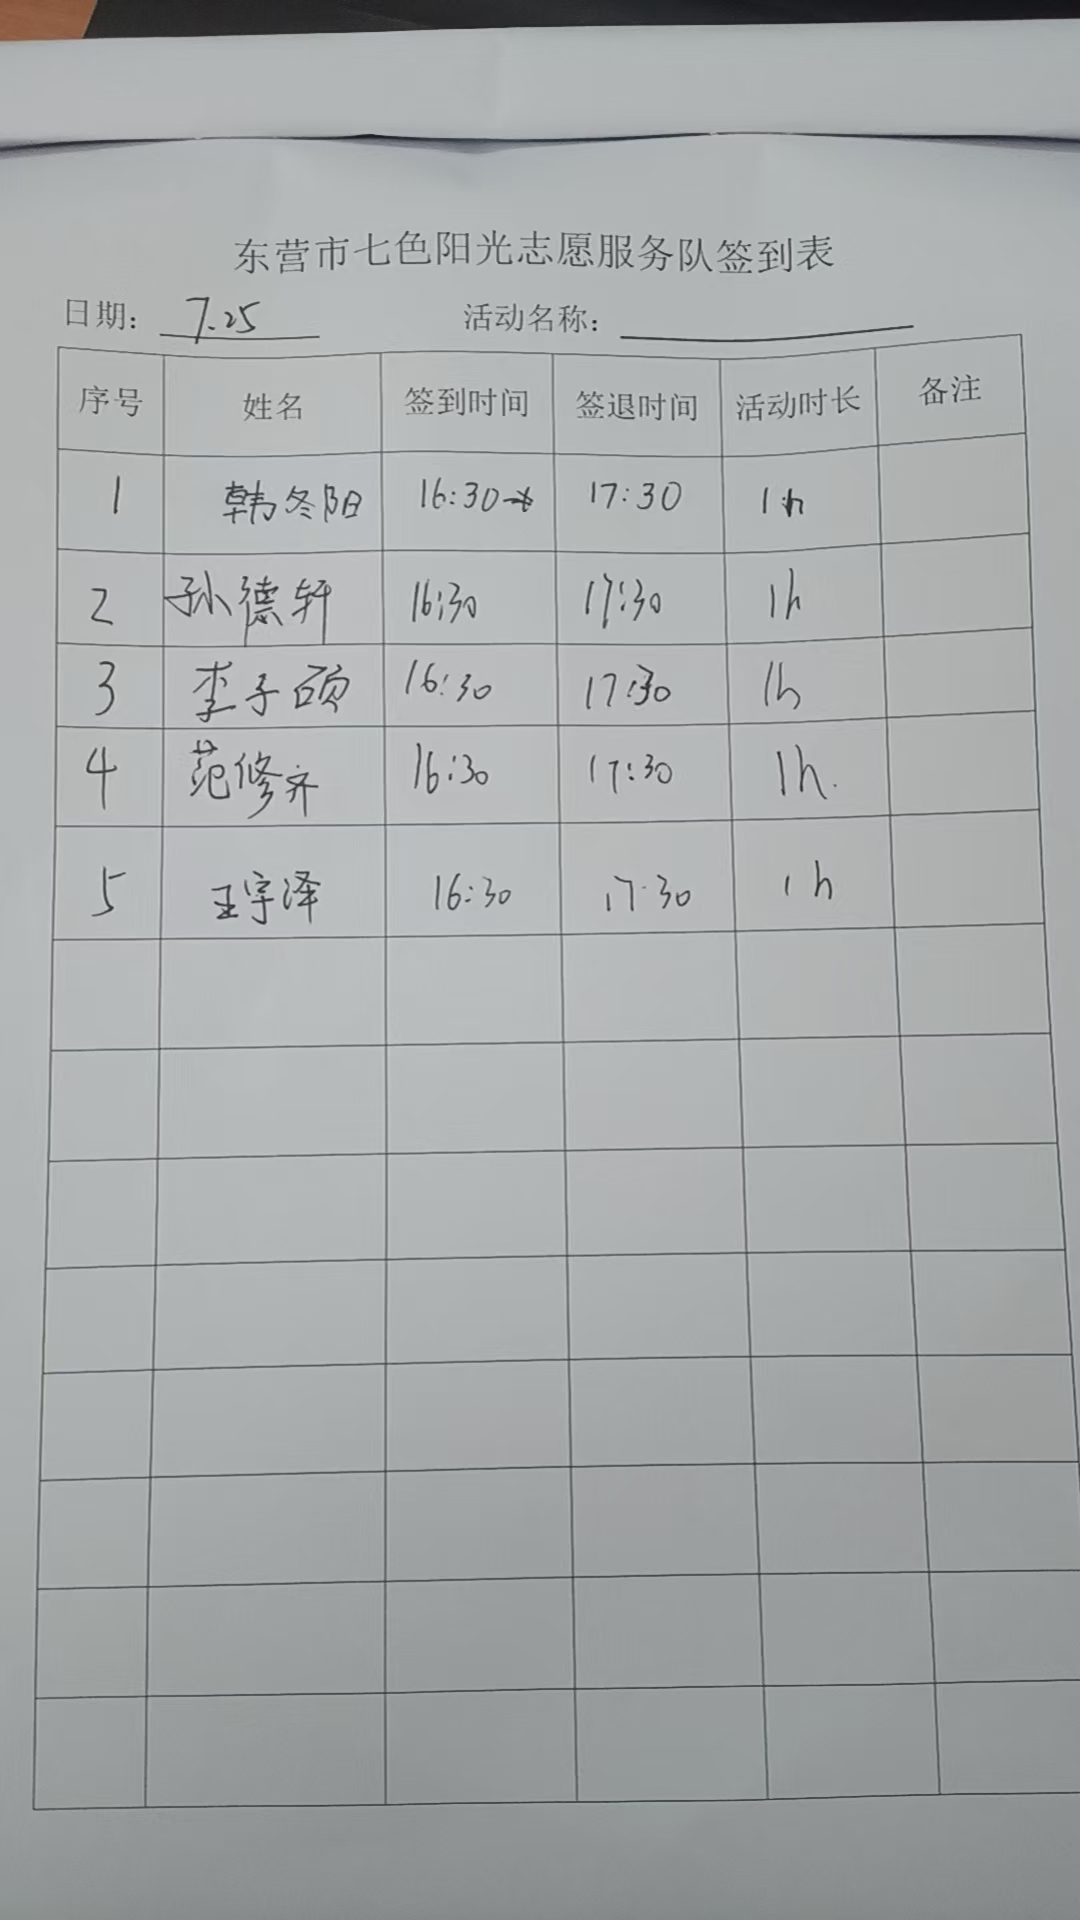 东营市七色阳光志愿服务队签到表
日期：7.25 活动名称：
序号 姓名 签到时间 签退时间 活动时长 备注
1 韩冬阳 16:30 17:30 1h
2 孙德轩 16:30 17:30 1h
3 李子硕 16:30 17:30 1h
4 范修齐 16:30 17:30 1h.
5 王宇泽 16:30 17:30 1h